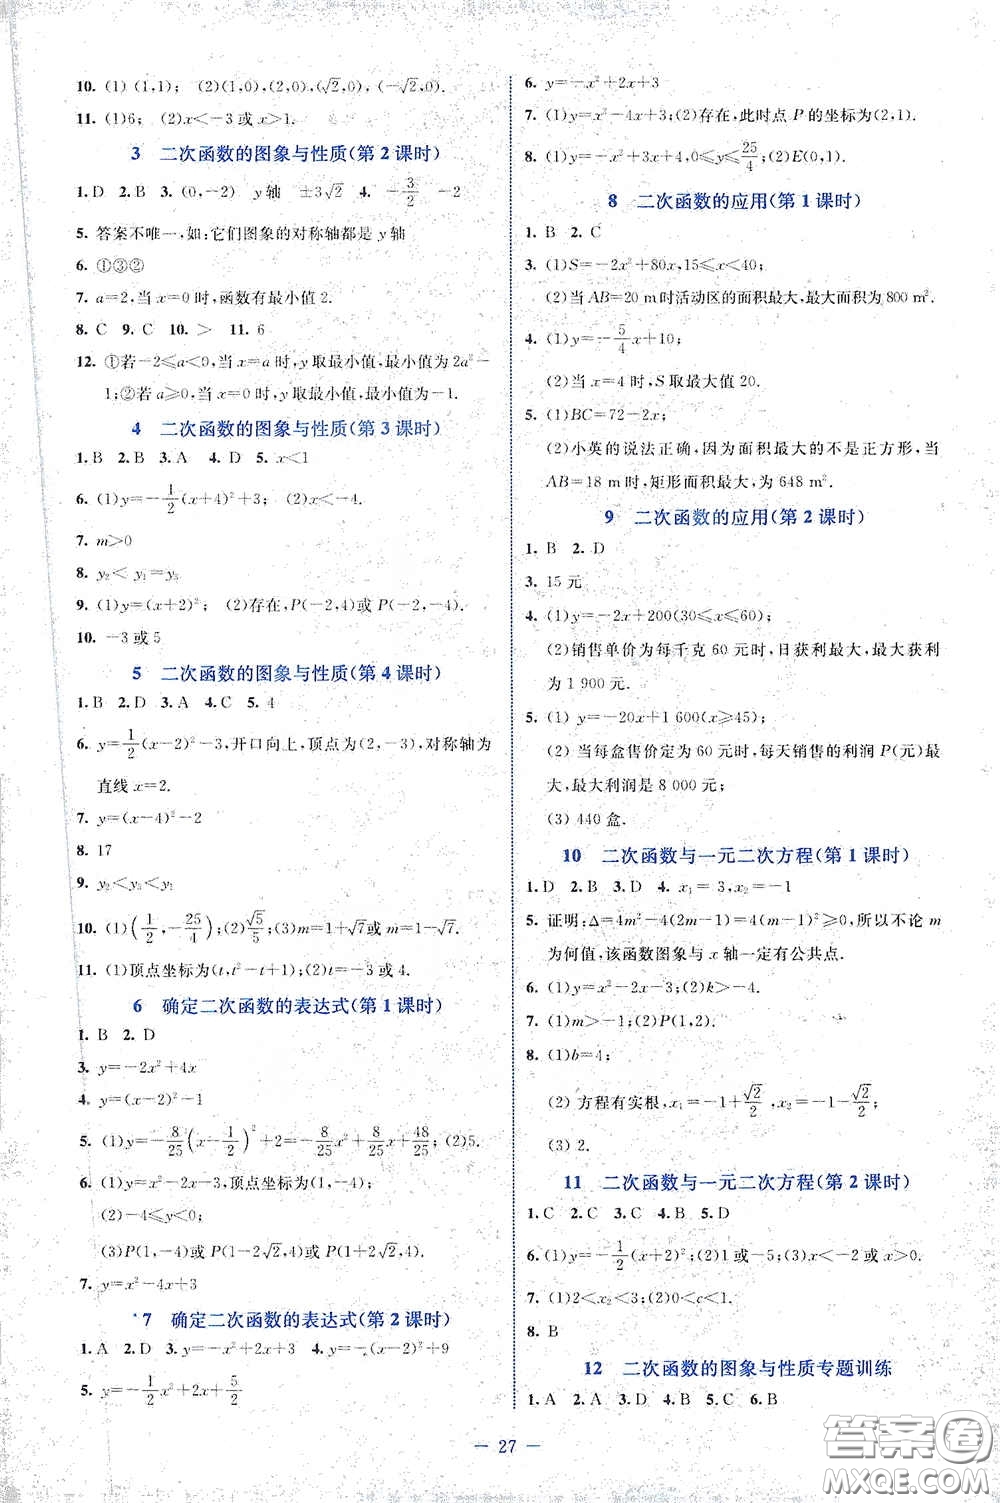 10. (1) (1,1); (2)(1,0),(2,0),(√2,0),(−√2,0).
11. (1)6; (2)x<−3或x>1.
3 二次函数的图象与性质(第2课时)
1. D 2. B 3. (0,−2) y轴 ±3√2 4. −3/2 −2
5. 答案不唯一,如:它们图象的对称轴都是y轴
6. ①③②
7. a=2,当x=0时,函数有最小值2.
8. C 9. C 10. > 11. 6
12. ①若−2≤a<0,当x=a时,y取最小值,最小值为2a²−
1;②若a≥0,当x=0时,y取最小值,最小值为−1.
4 二次函数的图象与性质(第3课时)
1. B 2. B 3. A 4. D 5. x<1
6. (1)y=−1/2(x+4)²+3; (2)x<−4.
7. m>0
8. y₂<y₁=y₃
9. (1)y=(x+2)²; (2)存在,P(−2,4)或P(−2,−4).
10. −3或5
5 二次函数的图象与性质(第4课时)
1. B 2. D 3. A 4. C 5. 4
6. y=1/2(x−2)²−3,开口向上,顶点为(2,−3),对称轴为
直线x=2.
7. y=(x−4)²−2
8. 17
9. y₂<y₃<y₁
10. (1)(1/2,−25/4);(2)√5/5;(3)m=1+√7或m=1−√7.
11. (1)顶点坐标为(t,t²−t+1);(2)t=−3或4.
6 确定二次函数的表达式(第1课时)
1. B 2. D
3. y=−2x²+4x
4. y=(x−2)²−1
5. (1)y=−8/25(x−1/2)²+2=−8/25x²+8/25x+48/25;(2)5.
6. (1)y=x²−2x−3,顶点坐标为(1,−4);
(2)−4≤y<0;
(3)P(1,−4)或P(1−2√2,4)或P(1+2√2,4).
7. y=x²−4x+3
7 确定二次函数的表达式(第2课时)
1. A 2. D 3. y=−x²+2x+3 4. y=−x²−2x+3
5. y=−1/2x²+2x+5/2
6. y=−x²+2x+3
7. (1)y=x²−4x+3;(2)存在,此时点P的坐标为(2,1).
8. (1)y=−x²+3x+4,0≤y≤25/4;(2)E(0,1).
8 二次函数的应用(第1课时)
1. B 2. C
3. (1)S=−2x²+80x,15≤x<40;
(2)当AB=20 m时活动区的面积最大,最大面积为800 m².
4. (1)y=−5/4x+10;
(2)当x=4时,S取最大值20.
5. (1)BC=72−2x;
(2)小英的说法正确,因为面积最大的不是正方形,当
AB=18 m时,矩形面积最大,为648 m².
9 二次函数的应用(第2课时)
1. B 2. D
3. 15元
4. (1)y=−2x+200(30≤x≤60);
(2)销售单价为每千克60元时,日获利最大,最大获利
为1 900元.
5. (1) y=−20x+1 600(x≥45);
(2) 当每盒售价定为60元时,每天销售的利润P(元)最
大,最大利润是8 000元;
(3) 440盒.
10 二次函数与一元二次方程(第1课时)
1. D 2. B 3. D 4. x₁=3,x₂=−1
5. 证明:Δ=4m²−4(2m−1)=4(m−1)²≥0,所以不论m
为何值,该函数图象与x轴一定有公共点.
6. (1)y=x²−2x−3;(2)k>−4.
7. (1)m>−1;(2)P(1,2).
8. (1)b=4;
(2) 方程有实根,x₁=−1+√2/2,x₂=−1−√2/2;
(3) 2.
11 二次函数与一元二次方程(第2课时)
1. C 2. C 3. C 4. B 5. D
6. (1)y=−1/2(x+2)²;(2)1或−5;(3)x<−2或x>0.
7. (1)2<x₂<3;(2)0<c<1.
8. B
12 二次函数的图象与性质专题训练
1. A 2. A 3. D 4. C 5. A 6. B
— 27 —
答案圈
MXQE.COM